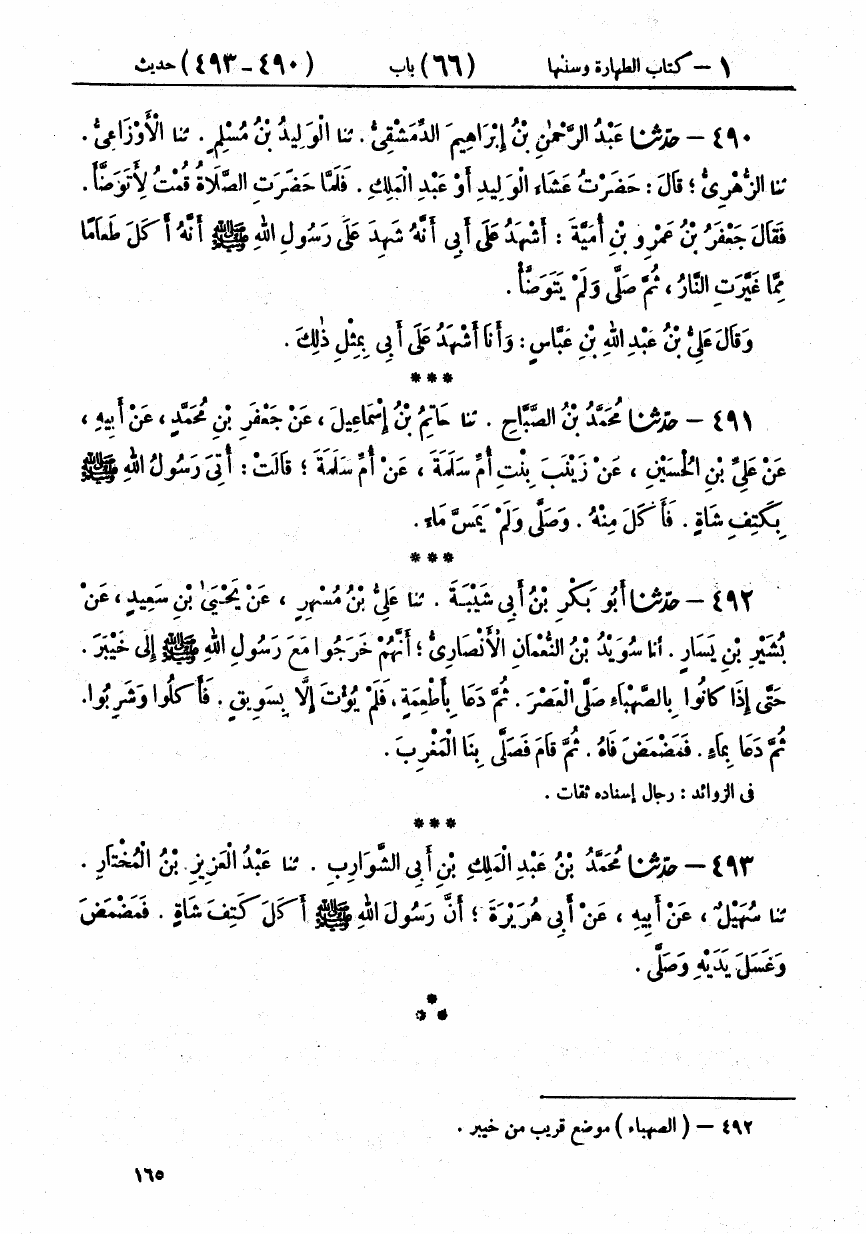 ١ – كتاب الطهارة وسننها (٦٦) باب (٤٩٠–٤٩٣) حديث
٤٩٠ – حدّثنا عَبْدُ الرَّحْمٰنِ بْنُ إِبْرَاهِيمَ الدِّمَشْقِىُّ . ثنا الْوَلِيدُ بْنُ مُسْلِمٍ . ثنا الْأَوْزَاعِىُّ .
ثنا الزُّهْرِىُّ ؛ قَالَ : حَضَرْتُ عَشَاءَ الْوَلِيدِ أَوْ عَبْدِ الْمَلِكِ . فَلَمَّا حَضَرَتِ الصَّلَاةُ قُمْتُ لِأَتَوَضَّأَ .
فَقَالَ جَعْفَرُ بْنُ عَمْرِو بْنِ أُمَيَّةَ : أَشْهَدُ عَلَى أَبِى أَنَّهُ شَهِدَ عَلَى رَسُولِ اللهِ ﷺ أَنَّهُ أَكَلَ طَعَامًا
مِمَّا غَيَّرَتِ النَّارُ ، ثُمَّ صَلَّى وَلَمْ يَتَوَضَّأْ .
وَقَالَ عَلِىُّ بْنُ عَبْدِ اللهِ بْنِ عَبَّاسٍ : وَأَنَا أَشْهَدُ عَلَى أَبِى بِمِثْلِ ذٰلِكَ .
***
٤٩١ – حدّثنا مُحَمَّدُ بْنُ الصَّبَّاحِ . ثنا حَاتِمُ بْنُ إِسْمَاعِيلَ ، عَنْ جَعْفَرِ بْنِ مُحَمَّدٍ ، عَنْ أَبِيهِ ،
عَنْ عَلِىِّ بْنِ الْحُسَيْنِ ، عَنْ زَيْنَبَ بِنْتِ أُمِّ سَلَمَةَ ، عَنْ أُمِّ سَلَمَةَ ؛ قَالَتْ : أُتِىَ رَسُولُ اللهِ ﷺ
بِكَتِفِ شَاةٍ . فَأَكَلَ مِنْهُ . وَصَلَّى وَلَمْ يَمَسَّ مَاءً .
***
٤٩٢ – حدّثنا أَبُو بَكْرِ بْنُ أَبِى شَيْبَةَ . ثنا عَلِىُّ بْنُ مُسْهِرٍ ، عَنْ يَحْيَىٰ بْنِ سَعِيدٍ ، عَنْ
بُشَيْرِ بْنِ يَسَارٍ . أنا سُوَيْدُ بْنُ النُّعْمَانِ الْأَنْصَارِىُّ ؛ أَنَّهُمْ خَرَجُوا مَعَ رَسُولِ اللهِ ﷺ إِلَى خَيْبَرَ .
حَتَّى إِذَا كَانُوا بِالصَّهْبَاءِ صَلَّى الْعَصْرَ . ثُمَّ دَعَا بِأَطْعِمَةٍ ، فَلَمْ يُؤْتَ إِلَّا بِسَوِيقٍ . فَأَكَلُوا وَشَرِبُوا .
ثُمَّ دَعَا بِمَاءٍ . فَمَضْمَضَ فَاهُ . ثُمَّ قَامَ فَصَلَّى بِنَا الْمَغْرِبَ .
فى الزوائد : رجال إسناده ثقات .
***
٤٩٣ – حدّثنا مُحَمَّدُ بْنُ عَبْدِ الْمَلِكِ بْنِ أَبِى الشَّوَارِبِ . ثنا عَبْدُ الْعَزِيزِ بْنُ الْمُخْتَارِ .
ثنا سُهَيْلٌ ، عَنْ أَبِيهِ ، عَنْ أَبِى هُرَيْرَةَ ؛ أَنَّ رَسُولَ اللهِ ﷺ أَكَلَ كَتِفَ شَاةٍ . فَمَضْمَضَ
وَغَسَلَ يَدَيْهِ وَصَلَّى .
***
٤٩٢ – ( الصهباء ) موضع قريب من خيبر .
١٦٥